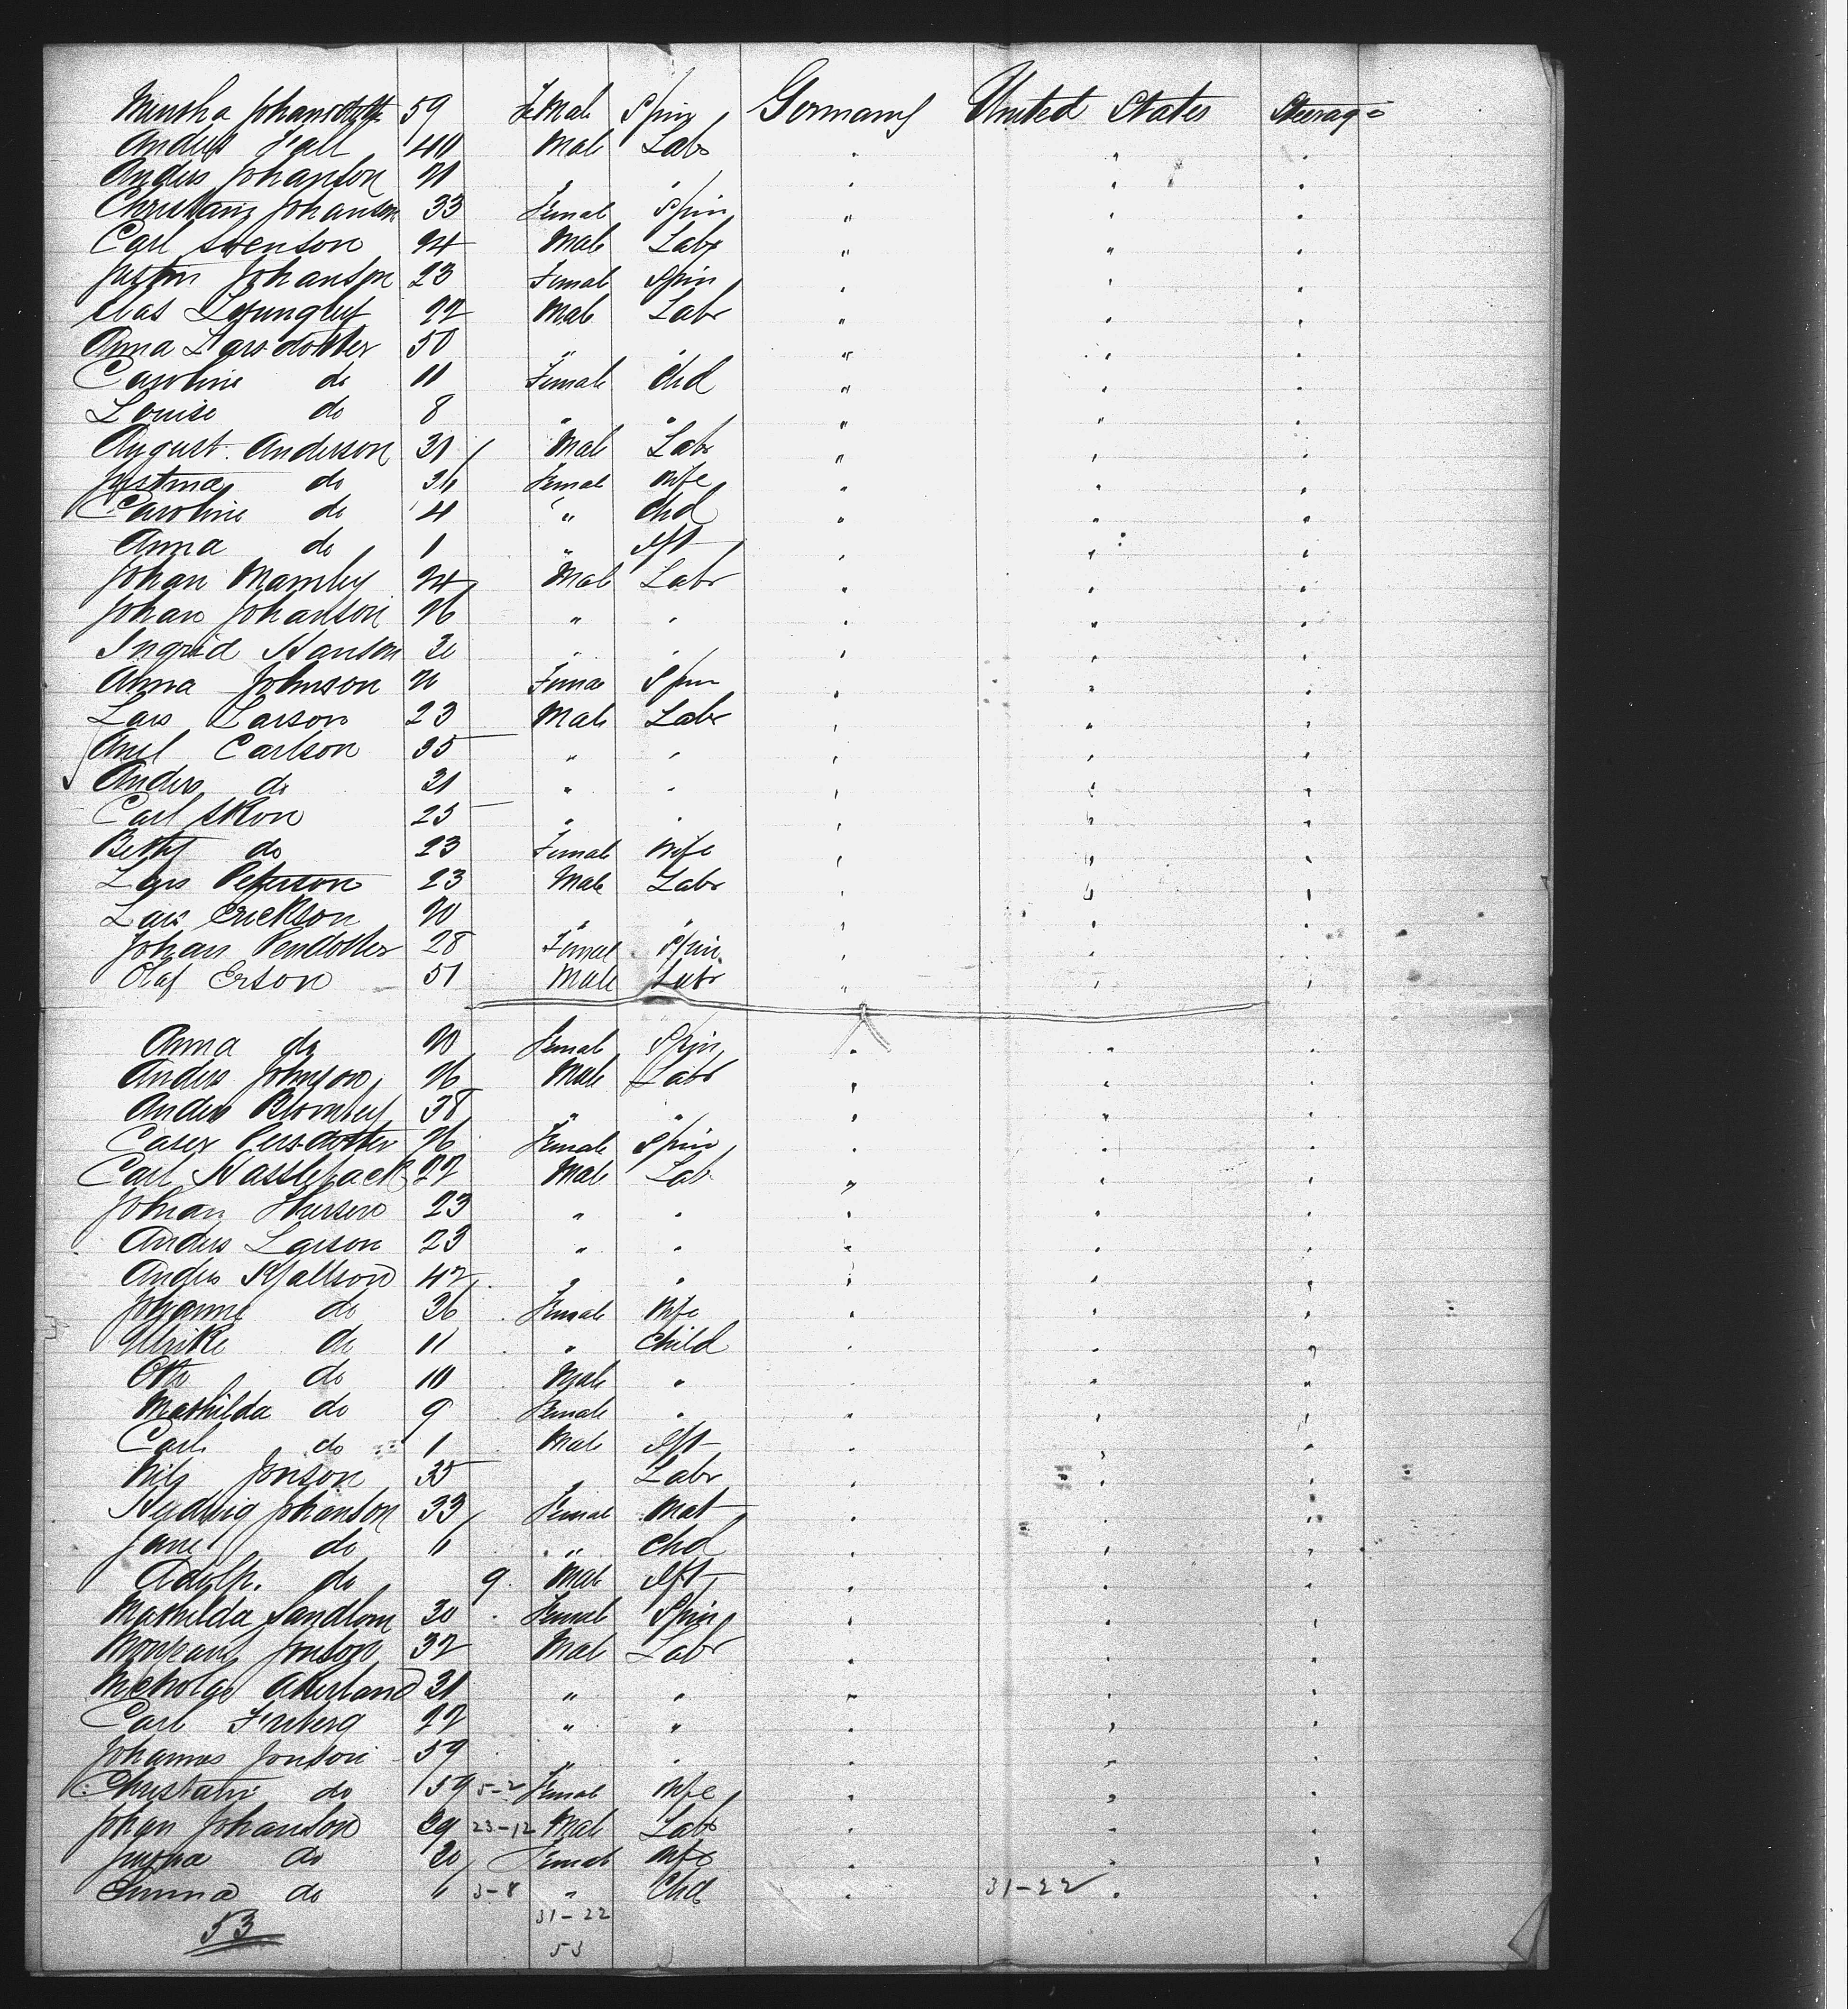 Johansdotter 59 Female Spin Germany United States Steerage
Anders Fall 44 Male Labr " " "
Anders Johanson 21 " " " " "
Christany Johanson 33 Female Spin " " "
Carl Svenson 24 Male Labr " " "
Johanson 23 Female Spin " " "
Clas 22 Male Labr " " "
Anna Larsdotter 50 " " " " "
Caroline do 11 Female Chd " " "
Louise do 8 " " " " "
August Anderson 31 Male Labr " " "
Justina do Female Wife " " "
Caroline do 4 " Chd " " "
Anna do 1 " Ift " " "
Johan 24 Male Labr " " "
Johan Johanson 26 " " " " "
Ingrid Hanson 20 " " " " "
Anna Johnson Female Spin " " "
Lars Larson 23 Male Labr " " "
Axel Carlson 35 " " " " "
Anders do 31 " " " " "
Carl Skon 25 " " " " "
Betty do 23 Female Wife " " "
Lars Peterson 23 Male Labr " " "
Lars Erickson 20 " " " " "
Johan 28 Female Spin " " "
Olaf Erson 51 Male Labr " " "
Anna do 20 Female Spin " " "
Anders Johnson 26 Male Labr " " "
Anders Blomberg 38 " " " " "
Persdotter 26 Female Spin " " "
Carl Hasslback 22 Male Lab " " "
Johan 23 " " " " "
Anders Larson 23 " " " " "
Anders Kjallson 42 " " " " "
Johanne do 36 Female Wife " " "
Ulrike do 11 " Child " " "
Otto do 10 Male " " " "
Mathilda do 9 Female " " " "
Carl do 1 Male Ift " " "
Nils Jonson 35 " Labr " " "
Hedwig Johanson 33 Female Mat " " "
Jane do 6 " Chd " " "
Adolp. do 9 Male Ift " " "
Mathilda Sandlom 30 Female Spin " " "
Jonson 32 Male Labr " " "
Nicholas Akerland 31 " " " " "
Carl Friberg 22 " " " " "
Johannes Jonson 59 " " " " "
Christain do 59 5-2 Female Wife " " "
Johan Johanson 29 23-12 Male Labr " " "
do 20 Female Wife " " "
Emma do 6 3-8 " Chd " 31-22 " "
53 31-22
53